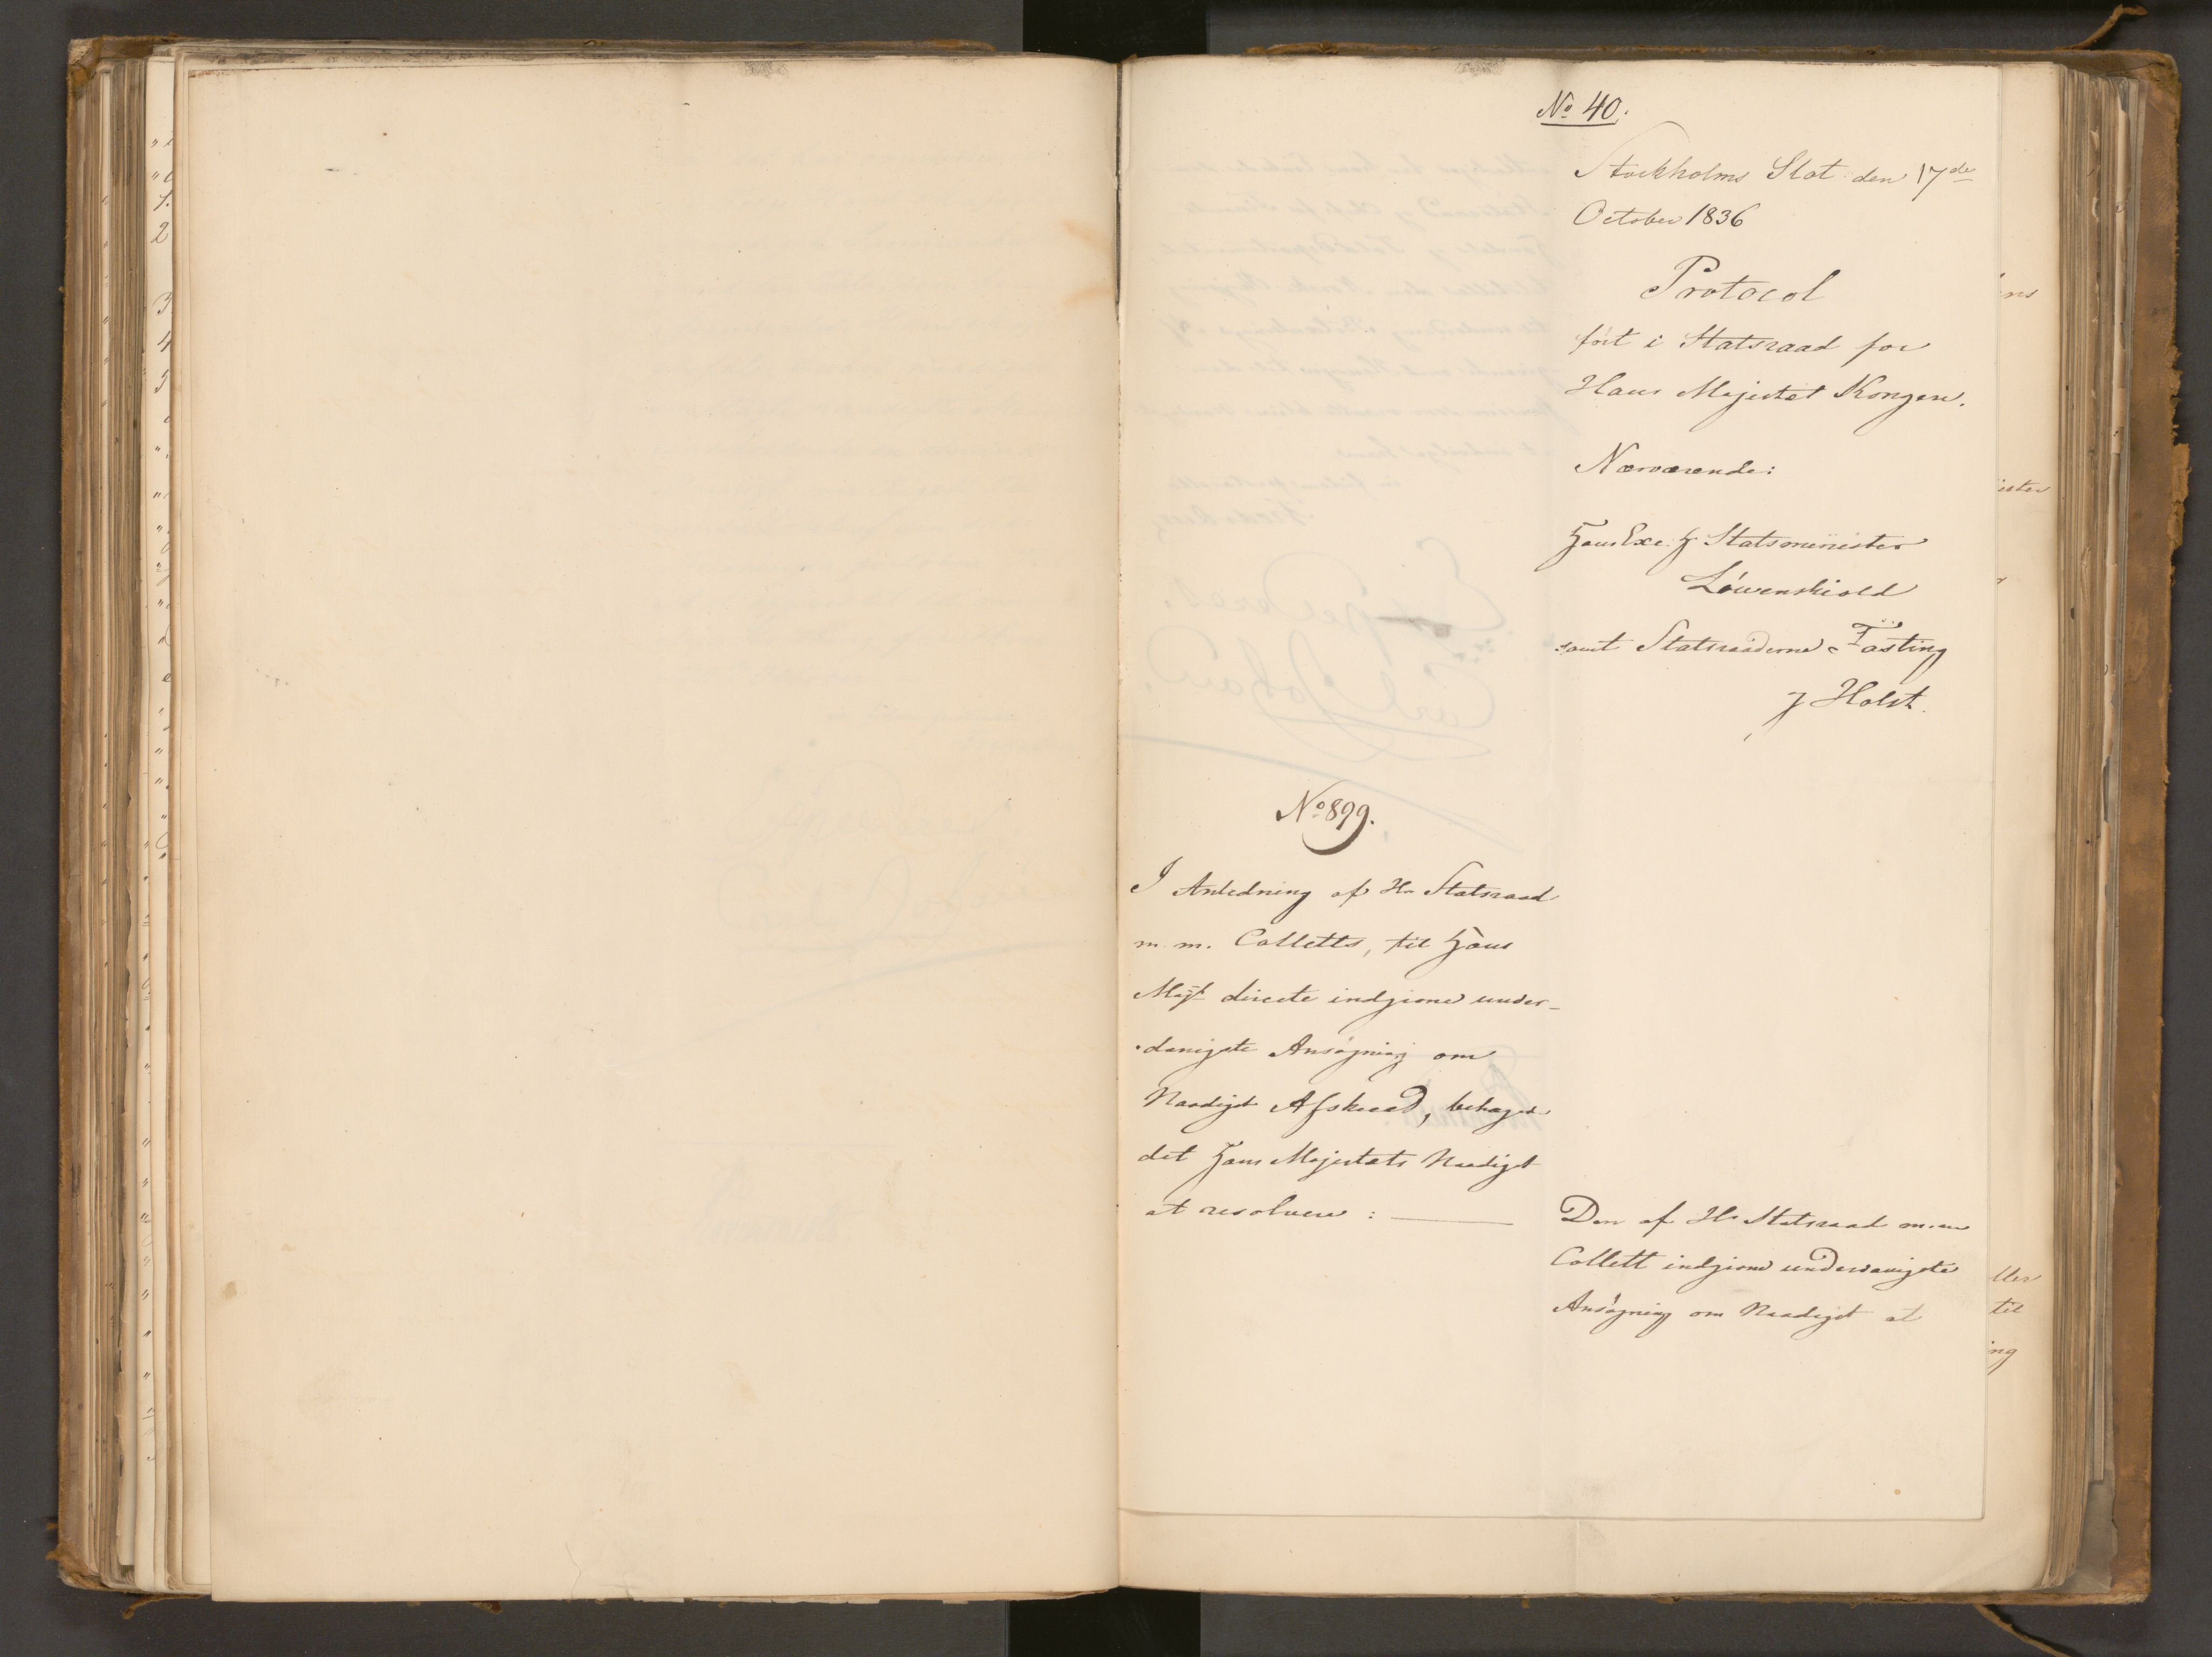 No 40.
Stockholms Slot den 17de
October 1836
Protocol
ført i Statsraad for
Hans Majestet Kongen.
Nærværende:
Hans Exc. H Statsminister
Löwenskiold
samt Statsraaderne Fasting
og Holst.
No 899.
I Anledning af Hr Statsraad
m. m. Colletts, til Hans
Majt directe indgivne under-
danigste Ansøgning om
Naadigst Afskeed, behaged
det Hans Majestæts Naadigst
at resolvere :
Den af Hr Statsraad m. m
Collett indgivne underdanigste
Ansøgning om Naadigst at